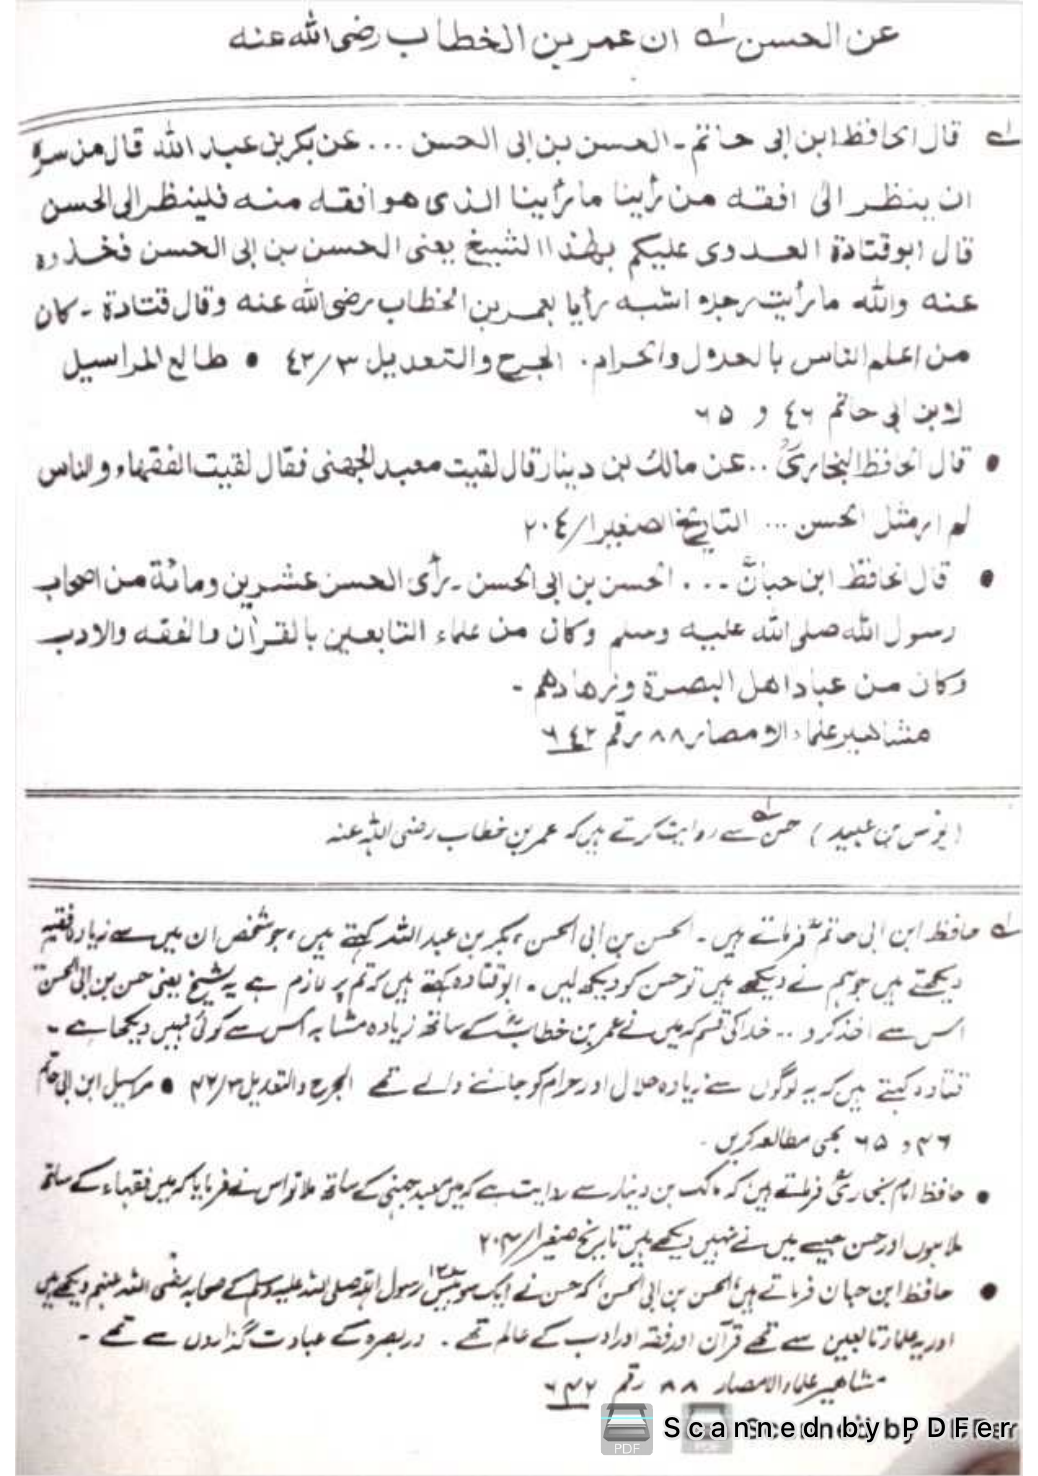 عن الحسن لے ان عمر بن الخطاب رضی اللہ عنہ
لے قال الحافظ ابن ابی حاتم ۔ الحسن بن ابی الحسن ... عن بکر بن عبد اللہ قال من سرہ
ان ینظر الی افقہ من رأینا ما رأینا الذی ھو افقہ منہ فلینظر الی الحسن
قال ابو قتادة العدوی علیکم بھذا الشیخ یعنی الحسن بن ابی الحسن فخذوہ
عنہ واللہ ما رأیت رجلا اشبہ رأیا بعمر بن الخطاب رضی اللہ عنہ وقال قتادة ۔ کان
من اعلم الناس بالحلال والحرام . الجرح والتعدیل ۳/٤۲ • طالع المراسیل
لابن ابی حاتم ٤٦ و ٦٥
• قال الحافظ البخاریؒ .. عن مالک بن دینار قال لقیت معبد الجھنی فقال لقیت الفقھاء والناس
لم ار مثل الحسن ... التاریخ الصغیر ۱/۲۰٤
• قال الحافظ ابن حبانؒ ... الحسن بن ابی الحسن ۔ رأی الحسن عشرین ومائة من اصحاب
رسول اللہ صلی اللہ علیہ وسلم وکان من علماء التابعین بالقرآن والفقہ والادب
وکان من عباد اھل البصرة وزھادھم ۔
مشاھیر علماء الامصار ۸۸ رقم ٦٤۲
(یونس بن عبید) حسن لے سے روایت کرتے ہیں کہ عمر بن خطاب رضی اللہ عنہ
لے حافظ ابن ابی حاتمؒ فرماتے ہیں ۔ الحسن بن ابی الحسن ، بکر بن عبد اللہ کہتے ہیں ، جو شخص ان میں سے زیادہ فقیہ
دیکھتے ہیں جو ہم نے دیکھے ہیں تو حسن کو دیکھ لیں ۔ ابو قتادہ کہتے ہیں کہ تم پر لازم ہے یہ شیخ یعنی حسن بن ابی الحسن تو
اس سے اخذ کرو .. خدا کی قسم کہ میں نے عمر بن خطابؓ کے ساتھ زیادہ مشابہ اس سے کوئی نہیں دیکھا ہے ۔
قتادہ کہتے ہیں کہ یہ لوگوں سے زیادہ حلال اور حرام کو جاننے والے تھے الجرح والتعدیل ۳/۴۲ • مراسیل ابن ابی حاتم
۴۶ و ۶۵ بھی مطالعہ کریں ۔
• حافظ امام بخاریؒ فرماتے ہیں کہ مالک بن دینار سے روایت ہے کہ میں معبد جہنی کے ساتھ ملا تو اس نے فرمایا کہ میں فقہاء کے ساتھ
ملا ہوں اور حسن جیسے میں نے نہیں دیکھے ہیں تاریخ صغیر ۱/۲۰۴
• حافظ ابن حبان فرماتے ہیں الحسن بن ابی الحسن ، کہ حسن نے ایک سو بیس ۱۲۰ رسول اللہ صلی اللہ علیہ وسلم کے صحابہ رضی اللہ عنہم دیکھے ہیں
اور یہ علماء تابعین سے تھے قرآن اور فقہ اور ادب کے عالم تھے ۔ اور بصرہ کے عبادت گذاروں سے تھے ۔
مشاھیر علماء الامصار ۸۸ رقم ۶۴۲
Scanned by PDFer